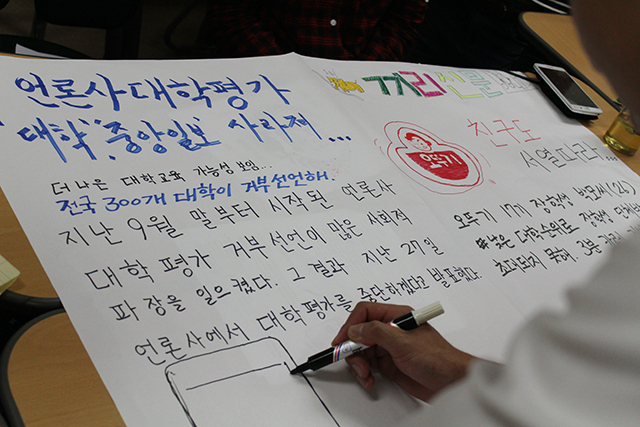 언론사대학평가
'대학' 중앙일보 사라져...
더 나은 대학교육 가능성 보인...
전국 300개 대학이 거부선언해.
지난 9월 말부터 시작된 언론사
대학 평가 거부선언이 많은 사회적
파장을 일으켰다. 그 결과 지난 27일
언론사에서 대학평가를 중단하겠다고 발표했다.
거리신문
친구도
서열따라...
오뚜기
오뚜기 17기 장현성
낮은 대학순위로
초대되지 못해.